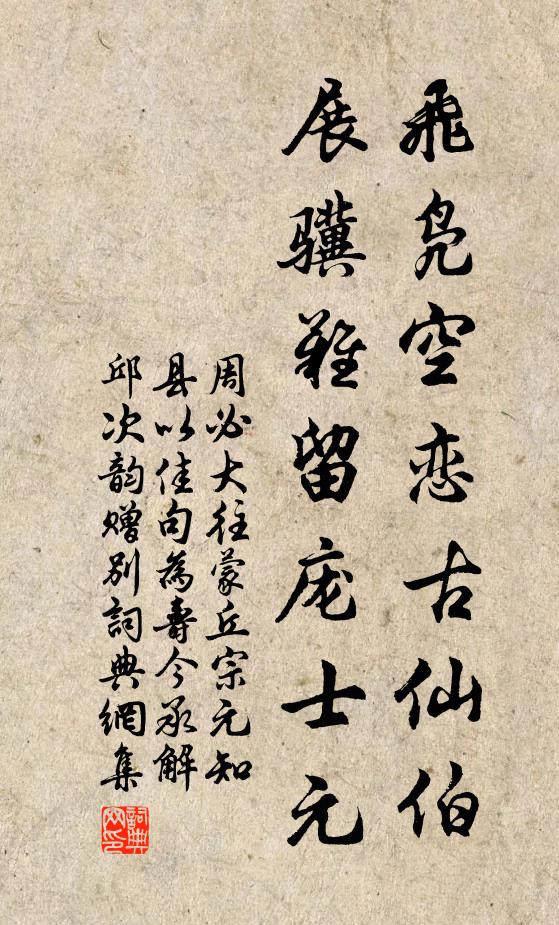 飛凫空恋古仙伯
展骥難留庞士元
周必大往蒙丘宗元知
县以佳句為壽今承解
邱次韵赠别詞典網集
詞典网印